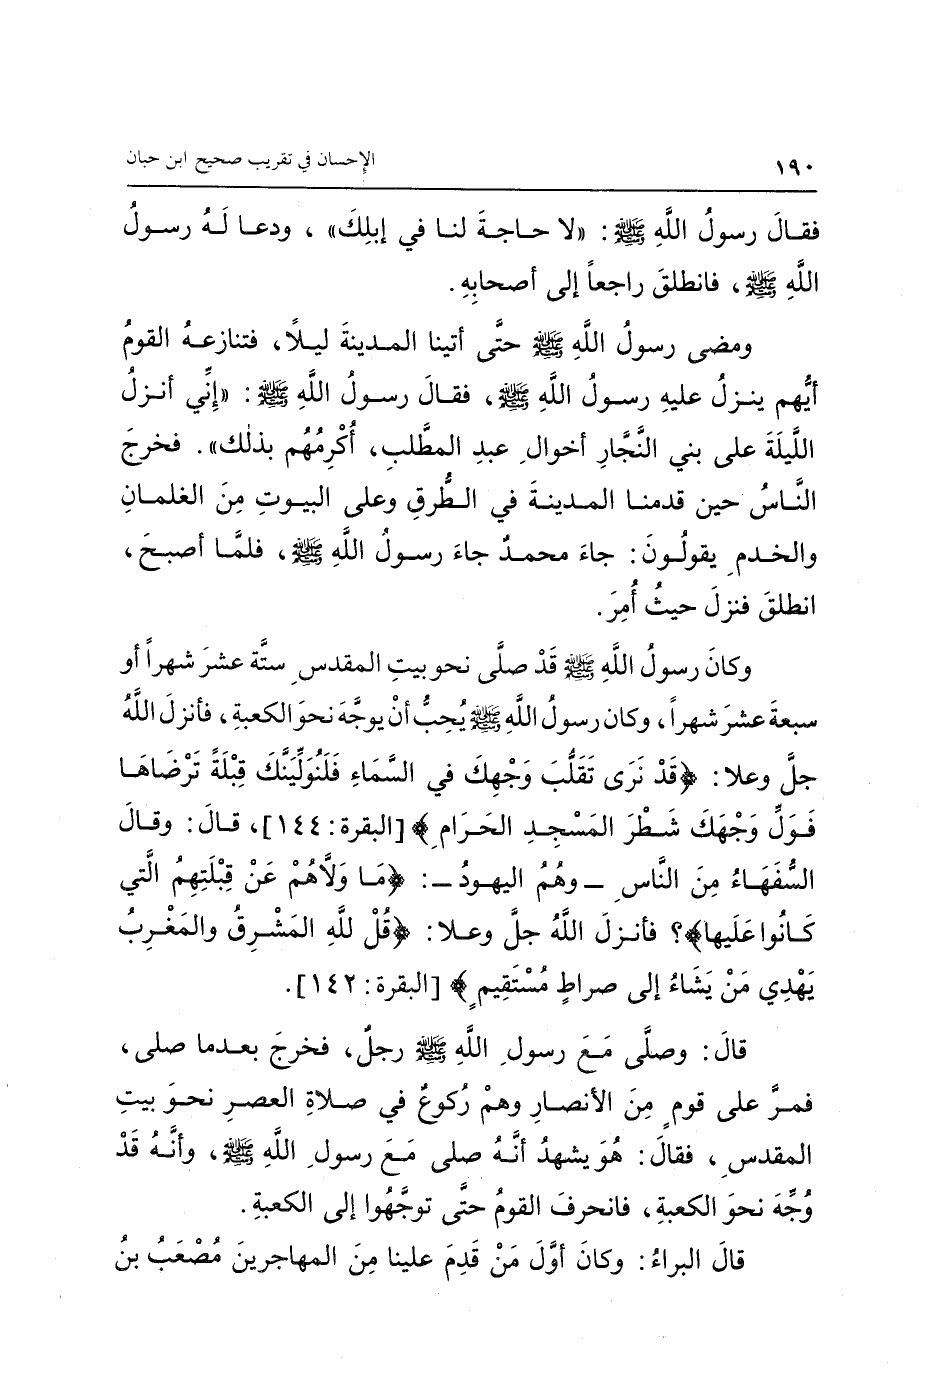 ١٩٠ الإحسان في تقريب صحيح ابن حبان
فقالَ رسولُ اللَّهِ ﷺ : «لا حاجةَ لنا في إبلِكَ» ، ودعا لَهُ رسولُ
اللَّهِ ﷺ، فانطلقَ راجعاً إلى أصحابِهِ.
ومضى رسولُ اللَّهِ ﷺ حتَّى أتينا المدينةَ ليلًا، فتنازعهُ القومُ
أيُّهم ينزلُ عليهِ رسولُ اللَّهِ ﷺ، فقالَ رسولُ اللَّهِ ﷺ: «إنِّي أنزلُ
اللَّيلَةَ على بني النَّجَّارِ أخوالِ عبدِ المطَّلبِ، أُكْرِمُهُم بذلكَ». فخرجَ
النَّاسُ حين قدمنا المدينةَ في الطُّرقِ وعلى البيوتِ مِنَ الغلمانِ
والخدمِ يقولُونَ: جاءَ محمدٌ جاءَ رسولُ اللَّهِ ﷺ، فلمَّا أصبحَ،
انطلقَ فنزلَ حيثُ أُمِرَ.
وكانَ رسولُ اللَّهِ ﷺ قَدْ صلَّى نحو بيتِ المقدسِ ستَّة عشرَ شهراً أو
سبعةَ عشرَ شهراً، وكان رسولُ اللَّهِ ﷺ يُحِبُّ أنْ يوجَّهَ نحوَ الكعبةِ، فأنزلَ اللَّهُ
جلَّ وعلا: ﴿قَدْ نَرَى تَقَلُّبَ وَجْهِكَ في السَّمَاءِ فَلَنُوَلِّيَنَّكَ قِبْلَةً تَرْضَاهَا
فَوَلِّ وَجْهَكَ شَطْرَ المَسْجِدِ الحَرَامِ﴾ [البقرة: ١٤٤]، قالَ: وقالَ
السُّفَهَاءُ مِنَ النَّاسِ ــ وهُمُ اليهودُ ــ: ﴿مَا وَلَّاهُمْ عَنْ قِبْلَتِهِمُ الَّتي
كَانُوا عَلَيها﴾؟ فأنزلَ اللَّهُ جلَّ وعلا: ﴿قُلْ للهِ المَشْرِقُ والمَغْرِبُ
يَهْدِي مَنْ يَشَاءُ إلى صراطٍ مُسْتَقِيمٍ﴾ [البقرة: ١٤٢].
قالَ: وصلَّى مَعَ رسولِ اللَّهِ ﷺ رجلٌ، فخرجَ بعدما صلى،
فمرَّ على قومٍ مِنَ الأنصارِ وهمْ رُكوعٌ في صلاةِ العصرِ نحوَ بيتِ
المقدسِ، فقالَ: هُوَ يشهدُ أنَّهُ صلى مَعَ رسولِ اللَّهِ ﷺ، وأنَّهُ قَدْ
وُجِّهَ نحوَ الكعبةِ، فانحرفَ القومُ حتَّى توجَّهُوا إلى الكعبةِ.
قالَ البراءُ: وكانَ أوَّلَ مَنْ قَدِمَ علينا مِنَ المهاجرينَ مُصْعَبُ بنُ